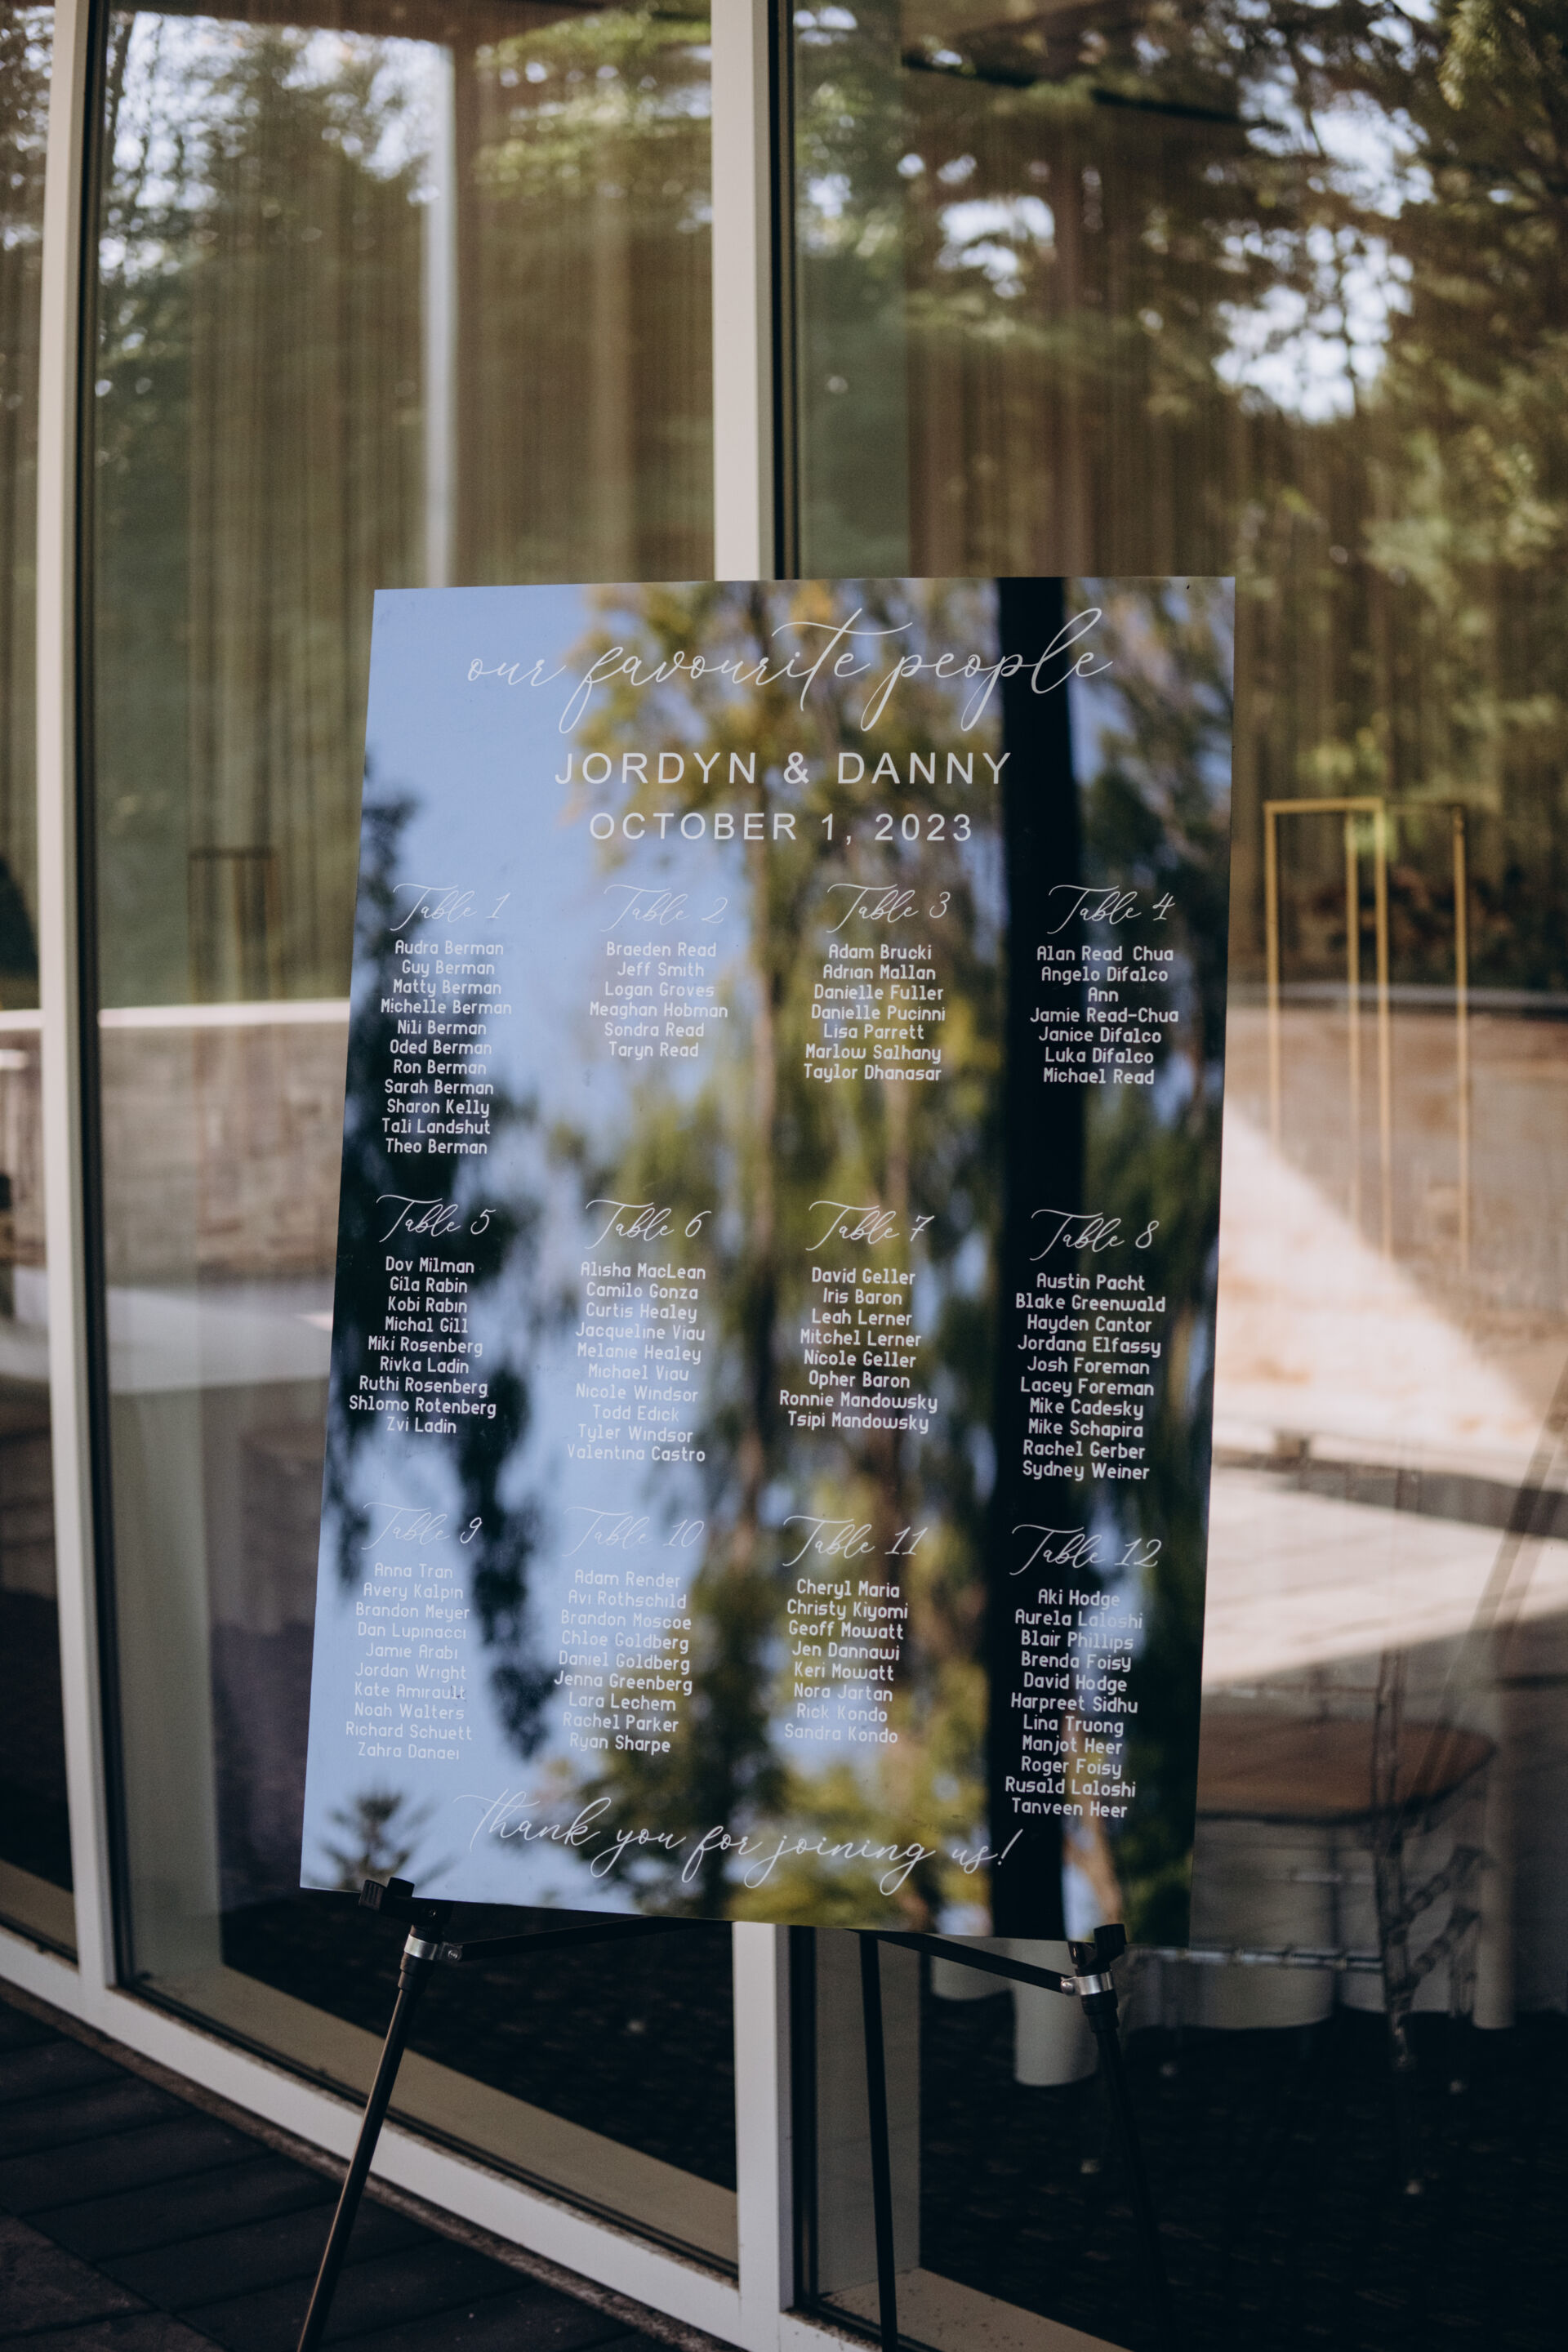 our favourite people
JORDYN & DANNY
OCTOBER 1, 2023
Table 1
Audra Berman
Guy Berman
Matty Berman
Michelle Berman
Nili Berman
Oded Berman
Ron Berman
Sarah Berman
Sharon Kelly
Tali Landshut
Theo Berman
Table 2
Braeden Read
Jeff Smith
Logan Groves
Meaghan Hobman
Sondra Read
Taryn Read
Table 3
Adam Brucki
Adrian Mallan
Danielle Fuller
Danielle Pucinni
Lisa Parrett
Marlow Salhany
Taylor Dhanasar
Table 4
Alan Read Chua
Angelo Difalco
Ann
Jamie Read-Chua
Janice Difalco
Luka Difalco
Michael Read
Table 5
Dov Milman
Gila Rabin
Kobi Rabin
Michal Gill
Miki Rosenberg
Rivka Ladin
Ruthi Rosenberg
Shlomo Rotenberg
Zvi Ladin
Table 6
Alisha MacLean
Camilo Gonza
Curtis Healey
Jacqueline Viau
Melanie Healey
Michael Viau
Nicole Windsor
Todd Edick
Tyler Windsor
Valentina Castro
Table 7
David Geller
Iris Baron
Leah Lerner
Mitchel Lerner
Nicole Geller
Opher Baron
Ronnie Mandowsky
Tsipi Mandowsky
Table 8
Austin Pacht
Blake Greenwald
Hayden Cantor
Jordana Elfassy
Josh Foreman
Lacey Foreman
Mike Cadesky
Mike Schapira
Rachel Gerber
Sydney Weiner
Table 9
Anna Tran
Avery Kalpin
Brandon Meyer
Dan Lupinacci
Jamie Arabi
Jordan Wright
Kate Amirault
Noah Walters
Richard Schuett
Zahra Danaei
Table 10
Adam Render
Avi Rothschild
Brandon Moscoe
Chloe Goldberg
Daniel Goldberg
Jenna Greenberg
Lara Lechem
Rachel Parker
Ryan Sharpe
Table 11
Cheryl Maria
Christy Kiyomi
Geoff Mowatt
Jen Dannawi
Keri Mowatt
Nora Jartan
Rick Kondo
Sandra Kondo
Table 12
Aki Hodge
Aurela Laloshi
Blair Phillips
Brenda Foisy
David Hodge
Harpreet Sidhu
Lina Truong
Manjot Heer
Roger Foisy
Rusald Laloshi
Tanveen Heer
Thank you for joining us!